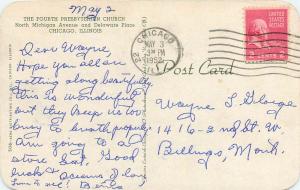 May 2
THE FOURTH PRESBYTERIAN CHURCH
North Michigan Avenue and Delaware Place
CHICAGO, ILLINOIS
Dear Wayne,
Hope you all are
getting along beautifully
this is wonderful
but they keep us too
busy to breathe properly
Am going to a
store Sat. Good
luck & oceans of love
CHICAGO
MAY 3
PM
1952
Post Card
Wayne L George
1416-2nd St. W.
Billings, Mont.